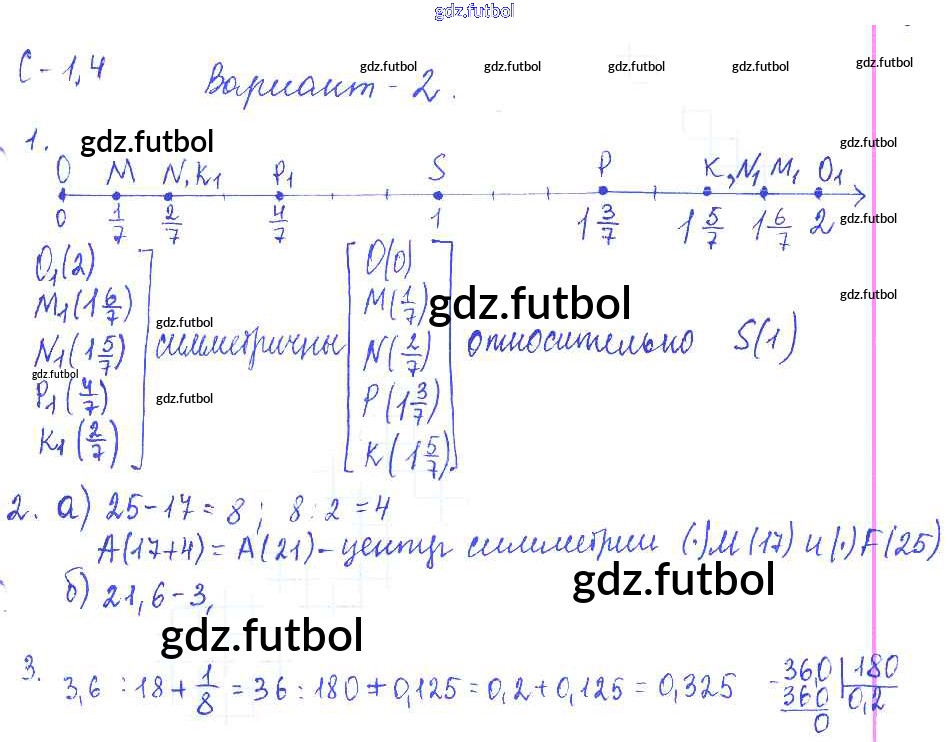 gdz.futbol
С-1,4
Вариант-2.
gdz.futbol gdz.futbol gdz.futbol gdz.futbol gdz.futbol
1.
gdz.futbol
gdz.futbol
O M N,K1 P1 S P K,N1 M1 O1
0 1/7 2/7 4/7 1 1 3/7 1 5/7 1 6/7 2
gdz.futbol
O1(2)
M1(1 6/7)
N1(1 5/7)
P1(4/7)
K1(2/7)
симметричны
O(0)
M(1/7)
N(2/7)
P(1 3/7)
K(1 5/7)
относительно S(1)
gdz.futbol
gdz.futbol
gdz.futbol
gdz.futbol
gdz.futbol
2. а) 25-17=8; 8:2=4
A(17+4)=A(21)-центр симметрии (·)M(17) и (·)F(25)
б) 21,6-3,
gdz.futbol
gdz.futbol
3. 3,6 : 18 + 1/8 = 36 : 180 + 0,125 = 0,2 + 0,125 = 0,325
-36,0 180
360 0,2
0